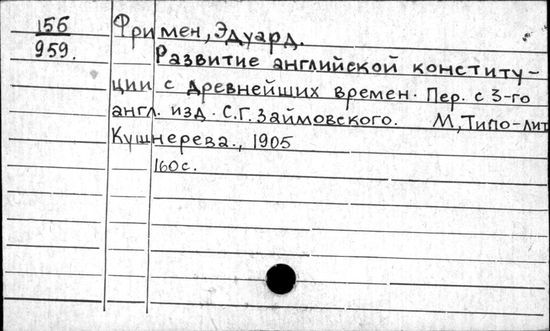 156
959.
Фримен, Эдуард.
Развитие английской конститу-
ции с древнейших времен. Пер. с 3-го
англ. изд. С.Г. Займовского. М, Типо-лит
Кушнерева., 1905
160 с.